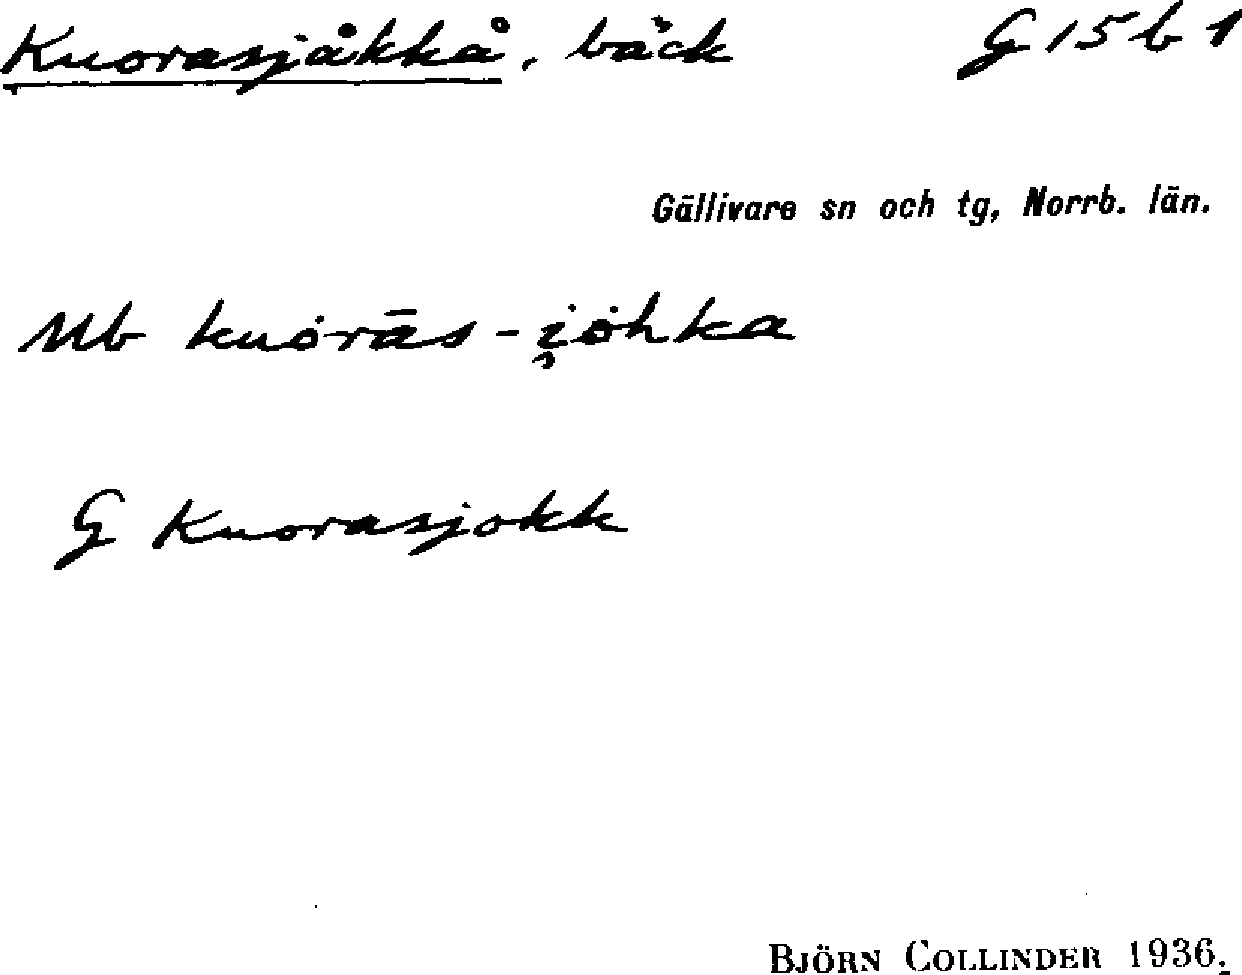 Kuorasjåkkå, bäck G 15 b 1
Gällivare sn och tg, Norrb. län.
Mb kuȯrās-i̯ȯhka
G Kuorasjokk
BJÖRN COLLINDER 1936.